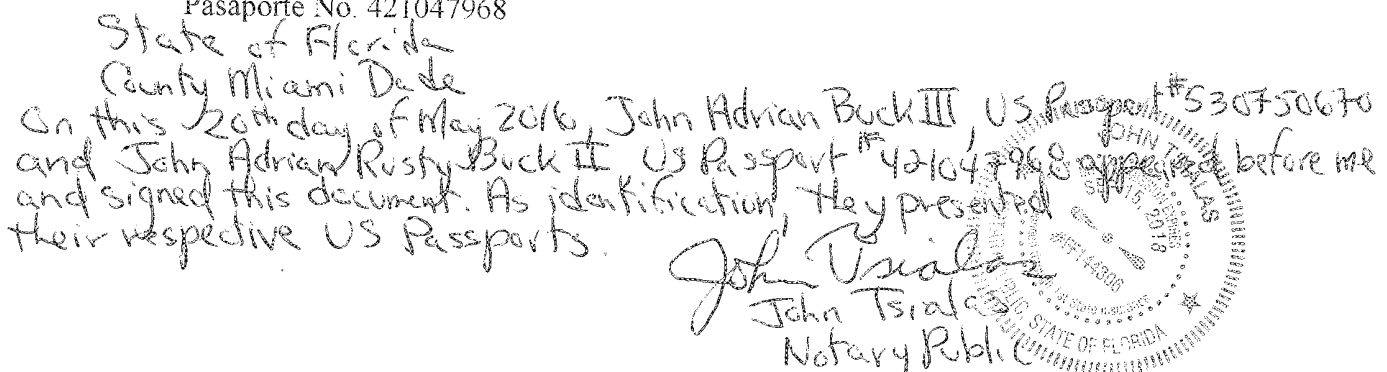 Pasaporte No. 421047968
State of Florida
County Miami Dade
On this 20th day of May 2016, John Adrian Buck III, US Passport #530750670
and John Adrian Rusty Buck II US Passport #421047968 appeared before me
and signed this document. As identification, they presented
their respective US Passports.
John Tsialas
John Tsialas
Notary Public
JOHN TSIALAS
SEP 15, 2018
#FF144306
PUBLIC, STATE OF FLORIDA